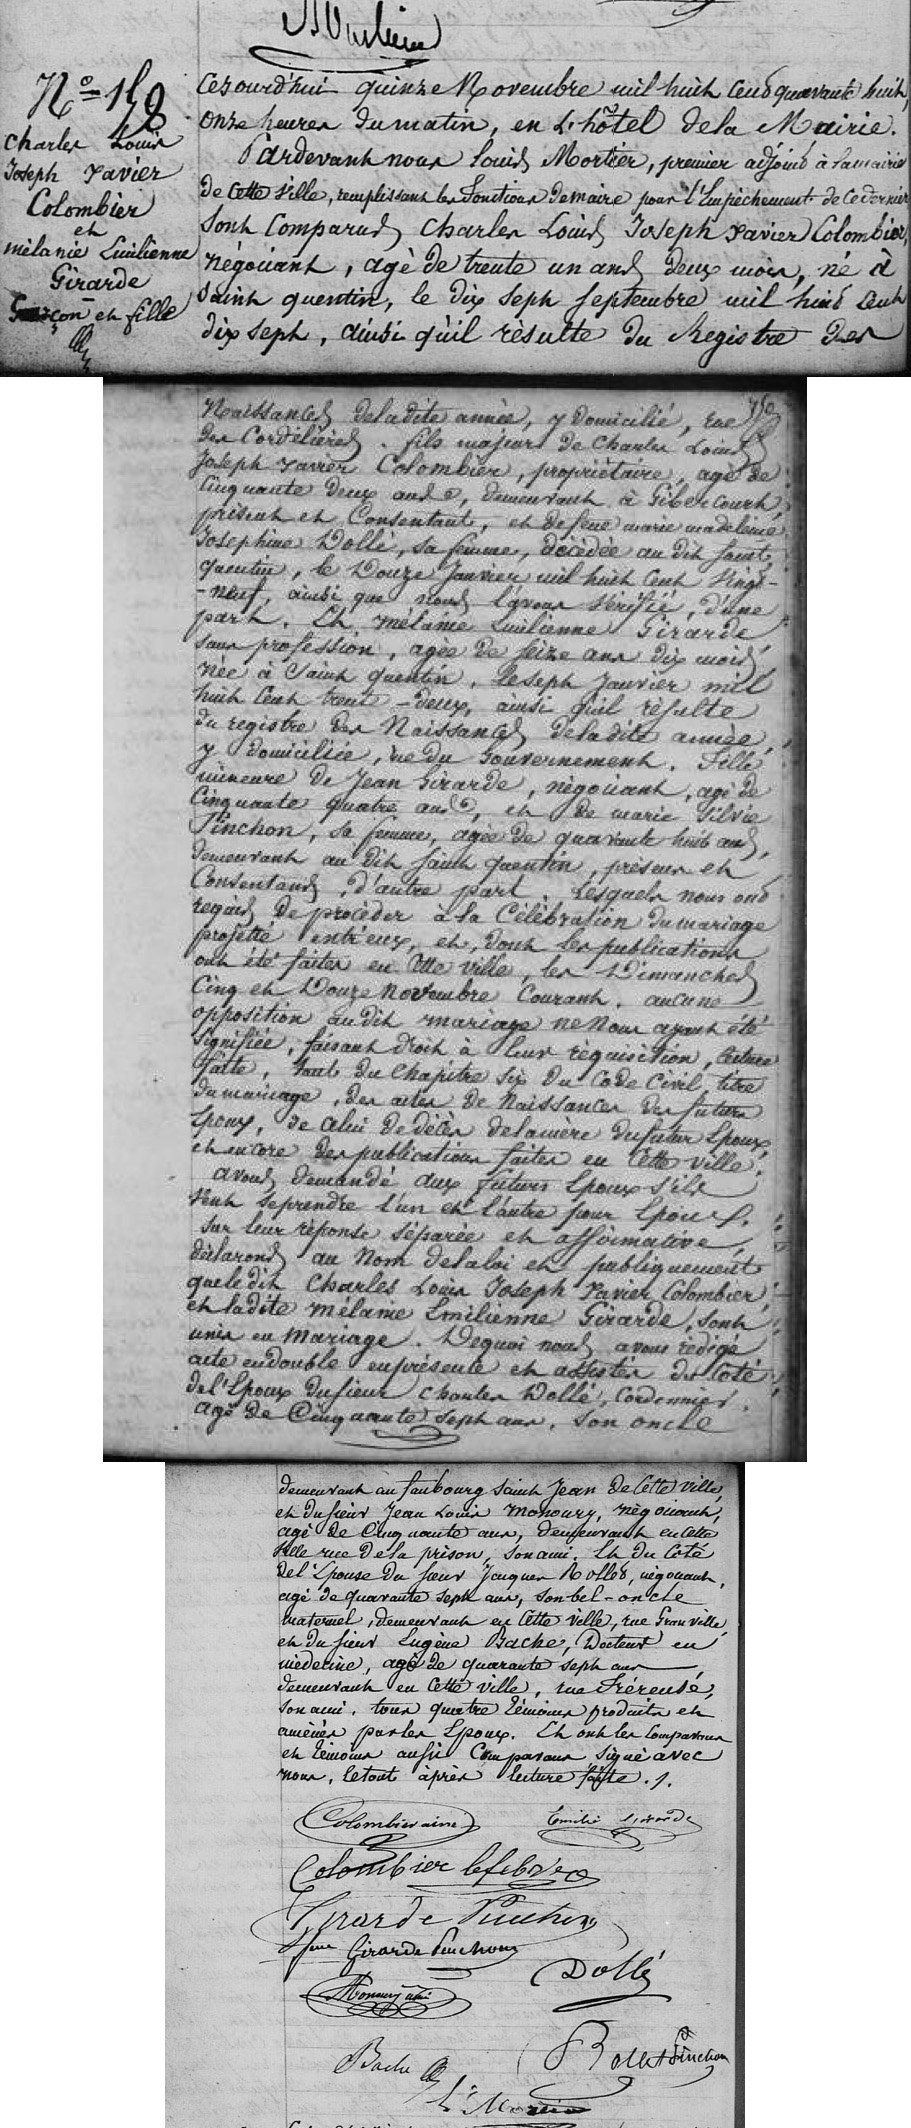 N.° 158
Charles Louis
Joseph Xavier
Colombier
et
mélanie Emilienne
Girarde
Garçon et fille
Cejourd'hui quinze Novembre mil huit Cent quarante huit,
Onze heures du matin, en L'hôtel de la Mairie.
Pardevant nous Louis Mortier, premier adjoint à la mairie
de Cette Ville, remplissant les fonctions de maire pour l'Empêchement de Ce dernier
Sont Comparus Charles Louis Joseph Xavier Colombier,
négociant, agé de trente un ans deux mois, né à
Saint quentin, le dix sept septembre mil huit Cent
dix sept, ainsi qu'il résulte du Registre des
Naissances de la dite année, y Domicilié, rue
des Cordelières. fils majeur de Charles Louis
Joseph Xavier Colombier, propriétaire, agé de
Cinquante deux ans, demeurant à Gibercourt,
présent et Consentant, et de feue marie madeleine
Josephine Dollé, sa femme, décédée au dit Saint
quentin, le Douze Janvier mil huit Cent Vingt-
-neuf, ainsi que nous l'avons Vérifié, d'une
part. Et mélanie Emilienne Girarde
sans profession, agée de seize ans dix mois,
née à Saint quentin, Le sept Janvier mil
huit Cent trent-deux, ainsi qu'il résulte
du registre des Naissances de la dite année,
y domiciliée, rue du Gouvernement. Fille
mineure de Jean Girarde, négociant, agé de
Cinquante quatre ans, et de marie Silvie
Pinchon, sa femme, agée de quarante huit ans,
demeurant au dit Saint quentin, présens et
Consentans, d'autre part. Lesquels nous ont
requis de procéder à la Célébration du mariage
projetté entr'eux, et dont les publications
ont été faites en Cette ville, les Dimanches
Cinq et Douze Novembre Courant. aucune
opposition audit mariage ne Nous ayant été
signifiée, faisant droit à leur réquisition, lecture
faite, tant du Chapitre six du Code Civil, titre
du mariage, des actes de Naissances des futurs
Epoux, de Celui de décès de la mère du futur Epoux
et encore des publications faites en Cette ville.
avons demandé aux futurs Epoux s'ils
veut se prendre l'un et l'autre pour Epoux.
Sur leur réponse séparée et affirmative,
déclarons au Nom de la loi et publiquement
que le dit Charles Louis Joseph Xavier Colombier,
et ladite mélanie Emilienne Girarde, sont
unis en Mariage. De quoi nous avons rédigé
acte en double en présente et assistés du Coté
de l'Epoux du sieur Charles Dollé, Cordonnier,
agé de Cinquante sept ans, son oncle
demeurant au faubourg Saint Jean de Cette ville,
et du sieur Jean Louis Monoury, négociant,
agé de Cinquante ans, demeurant en Cette
Ville rue de la prison, son ami. Et du Coté
de l'Epouse du sieur Jacques Rollet, négociant,
agé de quarante sept ans, son bel-oncle
maternel, demeurant en Cette ville, rue Granville,
et du sieur Eugène Bache, Docteur en
médecine, agé de quarante sept ans
demeurant en Cette ville, rue Fréreuse,
son ami. tous quatre témoins produits et
amenés par les Epoux. Et ont les Comparans
et témoins aussi Comparans signé avec
nous, le tout après lecture faite.
Colombier ainé Emilie Girarde
Colombier lefebvre
Girarde Pinchon
fme Girarde Pinchon
Dollé
Monoury
Bache Rollet Pinchon
Ls Mortier